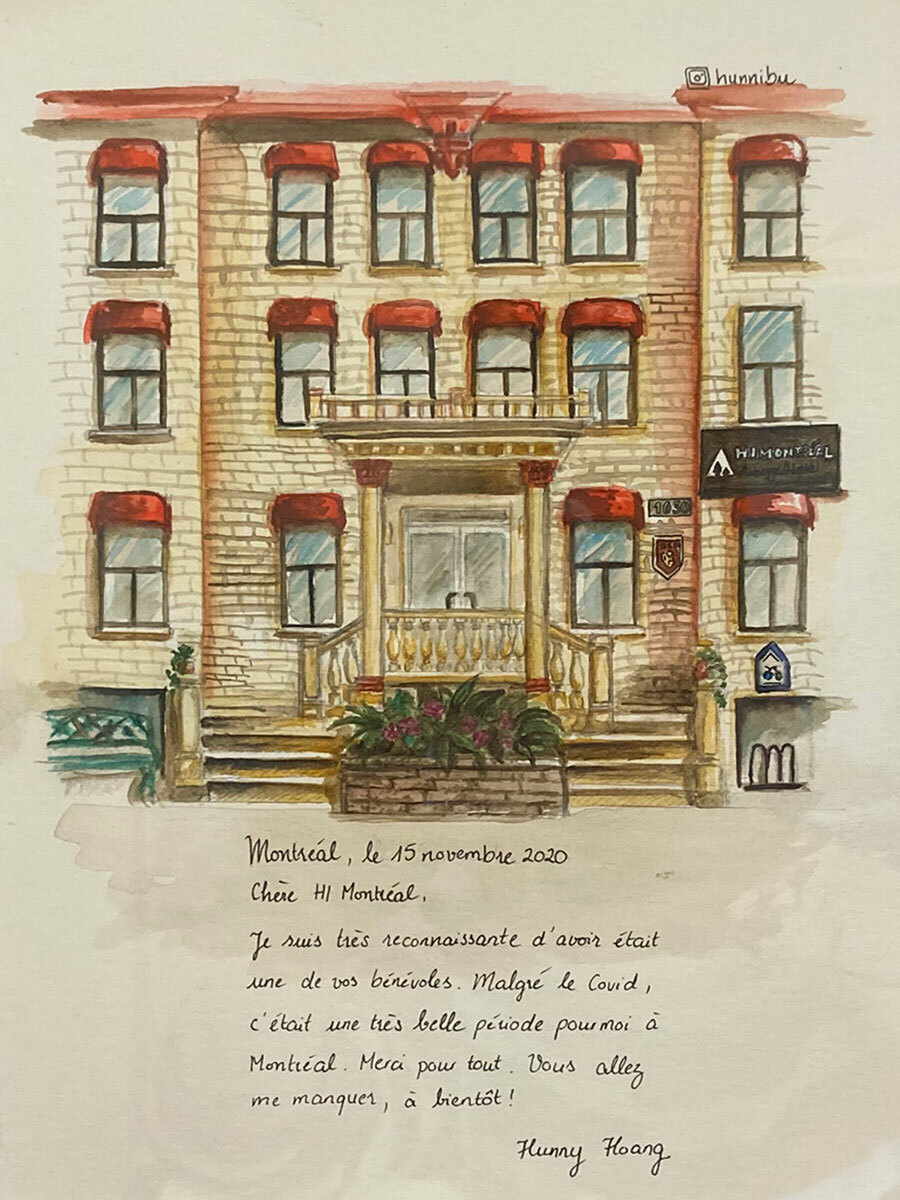 hunnibu
HI MONTRÉAL
1030
Montréal, le 15 novembre 2020
Chère HI Montréal,
Je suis très reconnaissante d'avoir était
une de vos bénévoles. Malgré le Covid,
c'était une très belle période pour moi à
Montréal. Merci pour tout. Vous allez
me manquer, à bientôt!
Hunny Hoang